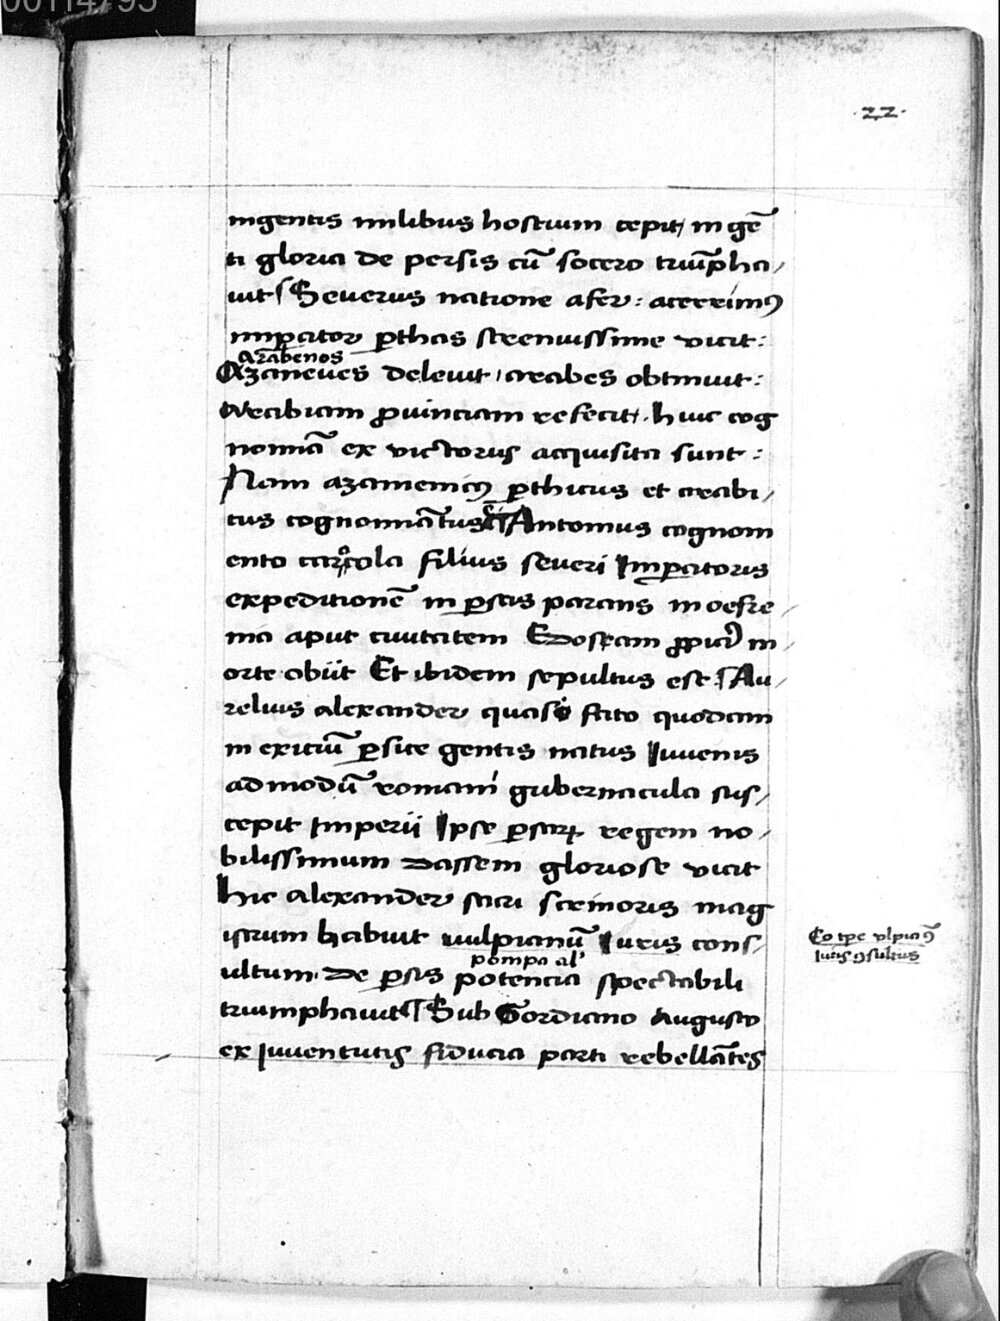 00114795
.22.
ingentis milibus hostium cepit, in gē
ti gloria de persis cū socero triūpha,
uit Seuerus natione afer: acerrimꝰ
imꝑator ꝑthos strenuissime vicit:
Azabenos
Azaneues deleuit, arabes obtinuit:
Arabiam ꝓuinciam refecit. huic cog
nominā ex victoriis acquisita sunt:
Nam azameniꝰ ꝑthicus et arabi,
cus cognominātus ē Antonius cognom
ento carocola filius seueri Imꝑatoris
expeditionē in ꝑsas parans in oesre,
ma aput ciuitatem Edossam ꝓpia in,
orte obiit Et ibidem sepultus est. Au,
relius alexander quasi facto quodam
in exiciū ꝑsice gentis natus Iuuenis
admodū romani gubernacula sus,
cepit Imperii Ipse ꝑsaꝝ regem no,
bilissimum Dassem gloriose vicit
hic alexander sacri scrinoris mag
istrum habuit uulpianū Iuris cons,
Eo tꝑe vlpianꝰ
Iuris ꝯsultus
pompa al'
ultum. De ꝑsis potencia spectabili
triumphauit Sub Gordiano Augusto
ex Iuuentutis fiducia parti rebellātes